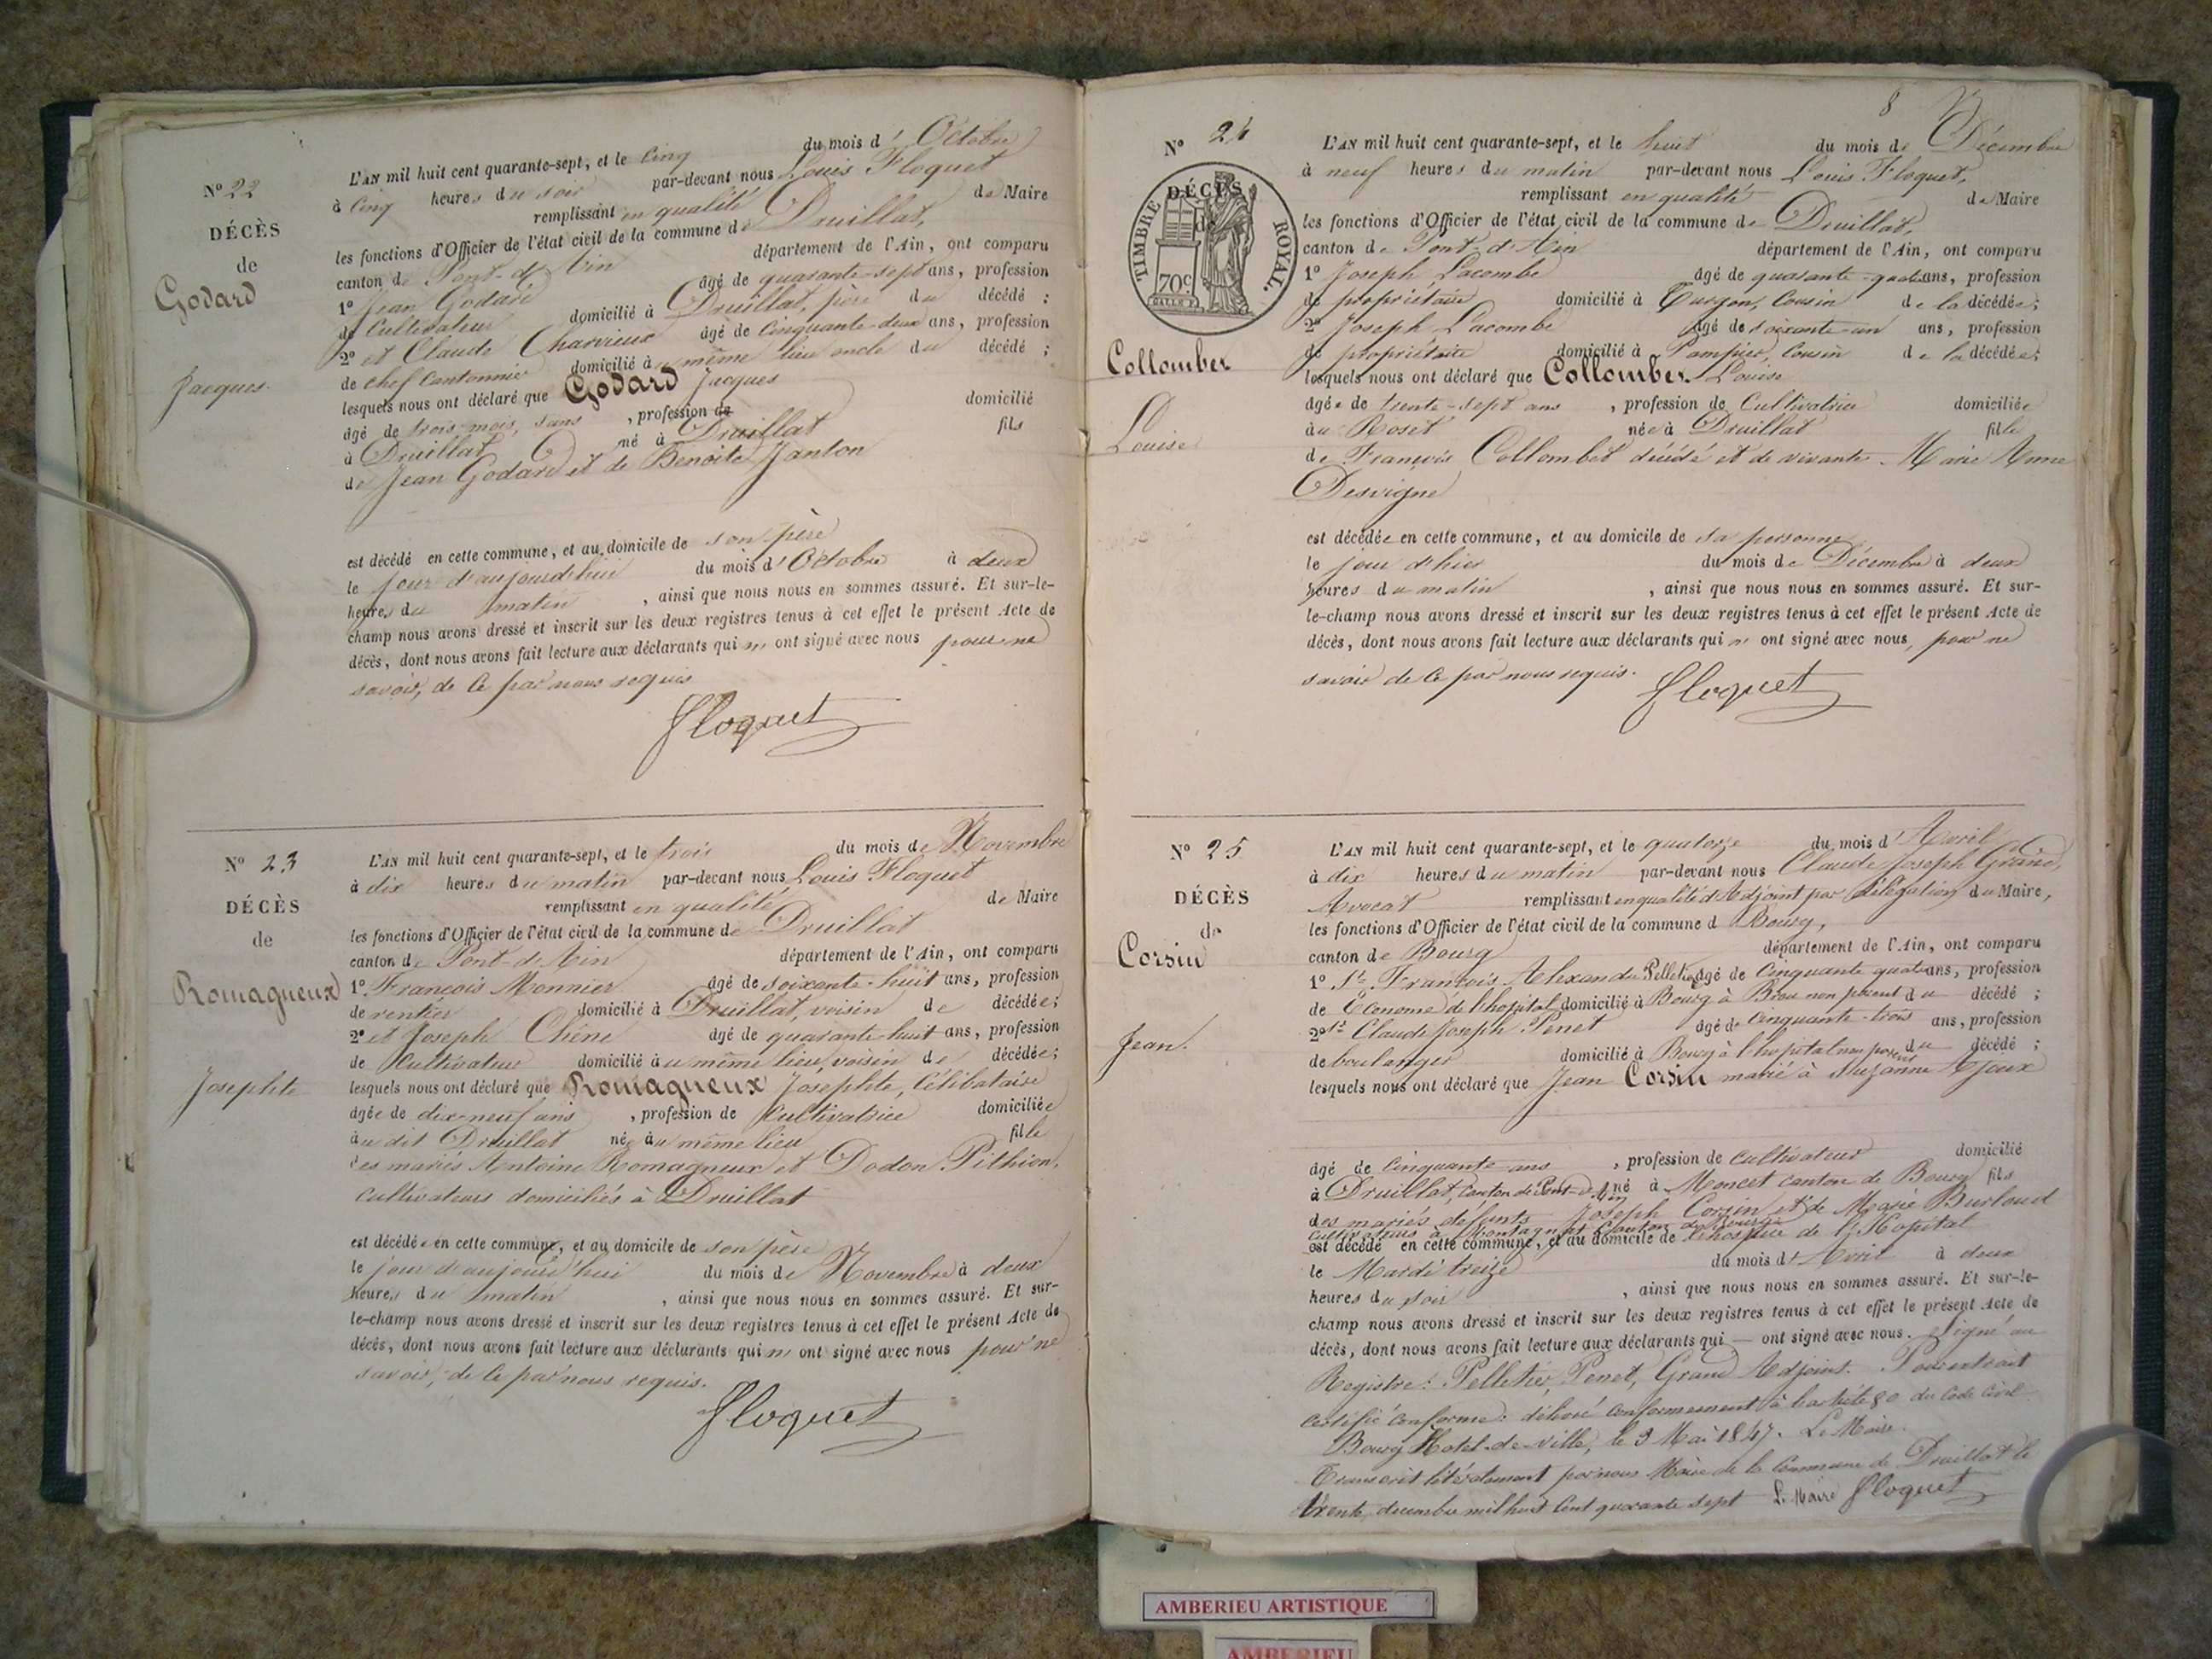 Nº 22
DÉCÈS
de
Godard
Jacques
L'AN mil huit cent quarante-sept, et le cinq du mois d' Octobre
à cinq heures du soir par-devant nous Louis Floquet
remplissant en qualité de Maire
les fonctions d'Officier de l'état civil de la commune de Druillat,
canton de Pont-d'Ain département de l'Ain, ont comparu
1º Jean Godard âgé de quarante-sept ans, profession
de Cultivateur domicilié à Druillat, père du décédé ;
2º et Claude Charvieux âgé de cinquante-deux ans, profession
de chef Cantonnier domicilié au même lieu oncle du décédé ;
lesquels nous ont déclaré que Godard Jacques
âgé de trois mois, sans , profession de domicilié
à Druillat né à Druillat fils
de Jean Godard et de Benoîte Janton
est décédé en cette commune, et au domicile de son père
le jour d'aujourd'hui du mois d'Octobre à deux
heures du matin , ainsi que nous nous en sommes assuré. Et sur-le-
champ nous avons dressé et inscrit sur les deux registres tenus à cet effet le présent Acte de
décès, dont nous avons fait lecture aux déclarants qui n' ont signé avec nous pour ne
savoir, de ce par nous requis
Floquet
Nº 23
DÉCÈS
de
Romagneux
Josephte
L'AN mil huit cent quarante-sept, et le trois du mois de Novembre
à dix heures du matin par-devant nous Louis Floquet
remplissant en qualité de Maire
les fonctions d'Officier de l'état civil de la commune de Druillat
canton de Pont-d'Ain département de l'Ain, ont comparu
1º François Monnier âgé de soixante-huit ans, profession
de rentier domicilié à Druillat, voisin de décédée ;
2º et Joseph Chêne âgé de quarante-huit ans, profession
de Cultivateur domicilié au même lieu, voisin de décédée ;
lesquels nous ont déclaré que Romagneux Josephte, Célibataire
âgée de dix-neuf ans , profession de Cultivatrice domiciliée
au dit Druillat née au même lieu fille
des mariés Antoine Romagneux et Dodon Pithion,
Cultivateurs domiciliés à Druillat
est décédée en cette commune, et au domicile de son père
le jour d'aujourd'hui du mois de Novembre à deux
heures du matin , ainsi que nous nous en sommes assuré. Et sur-
le-champ nous avons dressé et inscrit sur les deux registres tenus à cet effet le présent Acte de
décès, dont nous avons fait lecture aux déclarants qui n' ont signé avec nous pour ne
savoir, de ce par nous requis.
Floquet
8
Nº 24
DÉCÈS
de
TIMBRE ROYAL.
70c
Collomber
Louise
L'AN mil huit cent quarante-sept, et le huit du mois de Décembre
à neuf heures du matin par-devant nous Louis Floquet,
remplissant en qualité de Maire
les fonctions d'Officier de l'état civil de la commune de Druillat,
canton de Pont-d'Ain département de l'Ain, ont comparu
1º Joseph Lacombe âgé de quarante-quatre ans, profession
de propriétaire domicilié à Turgon, Cousin de la décédée ;
2º Joseph Lacombe âgé de soixante-un ans, profession
de propriétaire domicilié à Pampier, Cousin de la décédée ;
lesquels nous ont déclaré que Collomber Louise
âgée de trente-sept ans , profession de Cultivatrice domiciliée
au Roset née à Druillat fille
de François Collombet décédé et de vivante Marie Anne
Desvigne
est décédée en cette commune, et au domicile de sa personne
le jour d'hier du mois de Décembre à deux
heures du matin , ainsi que nous nous en sommes assuré. Et sur-
le-champ nous avons dressé et inscrit sur les deux registres tenus à cet effet le présent Acte de
décès, dont nous avons fait lecture aux déclarants qui n' ont signé avec nous, pour ne
savoir de ce par nous requis.
Floquet
Nº 25
DÉCÈS
de
Corsin
Jean.
L'AN mil huit cent quarante-sept, et le quatorze du mois d' Avril
à dix heures du matin par-devant nous Claude Joseph Grand,
Avocat remplissant en qualité d'Adjoint par délégation du Maire,
les fonctions d'Officier de l'état civil de la commune d Bourg,
canton de Bourg département de l'Ain, ont comparu
1º Sr. François Alexandre Pelletier âgé de cinquante quatre ans, profession
de Économe de l'hôpital domicilié à Bourg à Brou non parent du décédé ;
2º Sr. Claude Joseph Penet âgé de cinquante-trois ans, profession
de boulanger domicilié à Bourg à l'hôpital non parent du décédé ;
lesquels nous ont déclaré que Jean Corsin marié à Suzanne Ajoux
âgé de cinquante ans , profession de cultivateur domicilié
à Druillat, canton de Pont-d'Ain né à Moncet canton de Bourg fils
des mariés défunts Joseph Corsin et de Marie Burloud
cultivateurs à Montagnat Canton de Bourg
est décédé en cette commune, et au domicile de l'hospice de l'Hôpital
le Mardi treize du mois d'Avril à deux
heures du soir , ainsi que nous nous en sommes assuré. Et sur-le-
champ nous avons dressé et inscrit sur les deux registres tenus à cet effet le présent Acte de
décès, dont nous avons fait lecture aux déclarants qui — ont signé avec nous. Signé au
Registre : Pelletier, Penet, Grand Adjoint. Pour extrait
certifié conforme : délivré conformement à l'article 80 du Code Civil
Bourg Hotel-de-ville, le 3 Mai 1847. Le Maire.
Transcrit littéralement par nous Maire de la Commune de Druillat le
trente decembre mil huit cent quarante sept Le Maire Floquet
AMBERIEU ARTISTIQUE
AMBERIEU